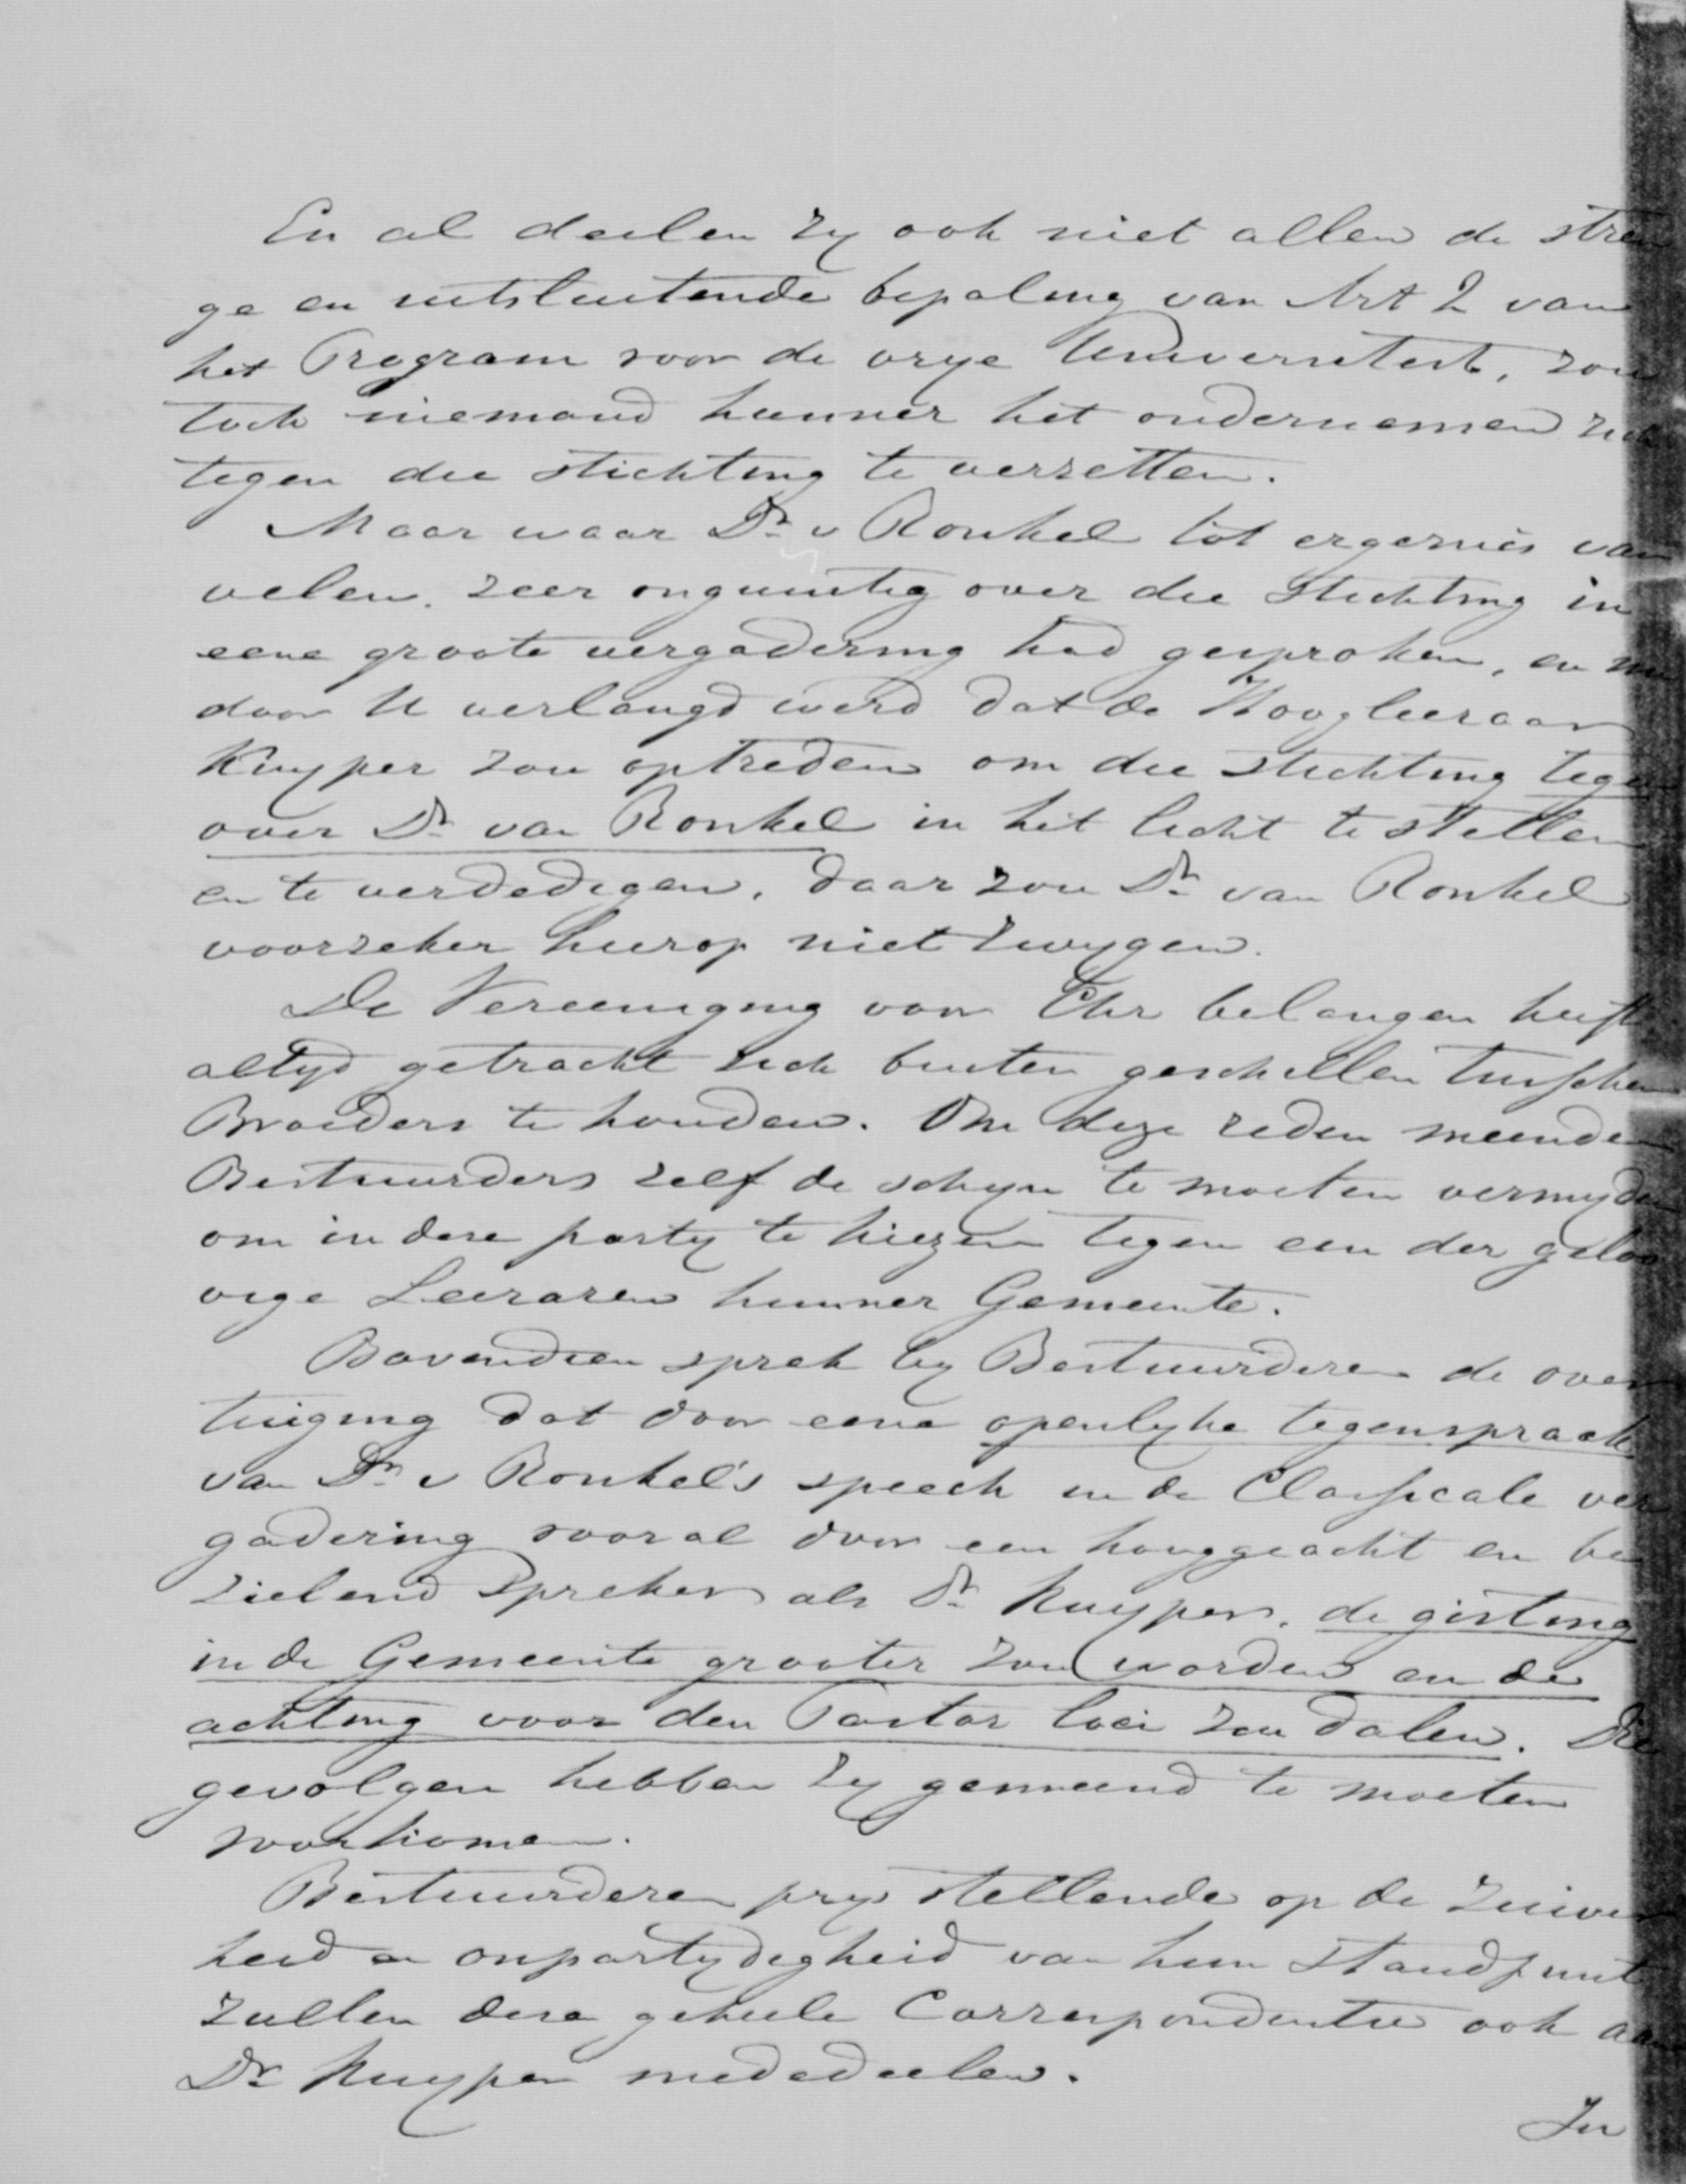 En al deelen zy ook niet allen de stren
ge en uitsluitende bepaling van Art 2 van
het Program voor de vrye Universiteit, zou
toch niemand hunner het ondernemen zich
tegen die stichting te verzetten.
Maar waar Dr v Ronkel tot ergernis van
velen, zeer ongunstig over die Stichting in
eene groote vergadering had gesproken, en nu
door U verlangd werd dat de Hoogleeraar
Kuyper zou optreden om die stichting tegen
over Dr van Ronkel in het licht te stellen
en te verdedigen, daar zou Dr van Ronkel
voorzeker hierop niet zwygen.
De Vereeniging voor Chr belangen heeft
altyd getracht zich buiten geschillen tusschen
Broeders te houden. Om deze reden meenden
Bestuurders zelf de schyn te moeten vermyden
om in deze party te kiezen tegen een der geloo
vige Leeraren hunner Gemeente.
Bovendien sprak by Bestuurderen de over
tuiging dat door eene openlyke tegenspraak
van Dr v Ronkel's speech in de Classicale ver
gadering vooral door een hooggeacht en be
zielend Spreker als Dr Kuyper, de gisting
in de Gemeente grooter zou worden en de
achting voor den Pastor loci zou dalen. Die
gevolgen hebben zy gemeend te moeten
voorkomen.
Bestuurderen prys stellende op de zuiver
heid en onpartydigheid van hun standpunt
zullen deze geheele Correspondentie ook aan
Dr Kuyper mededeelen.
In